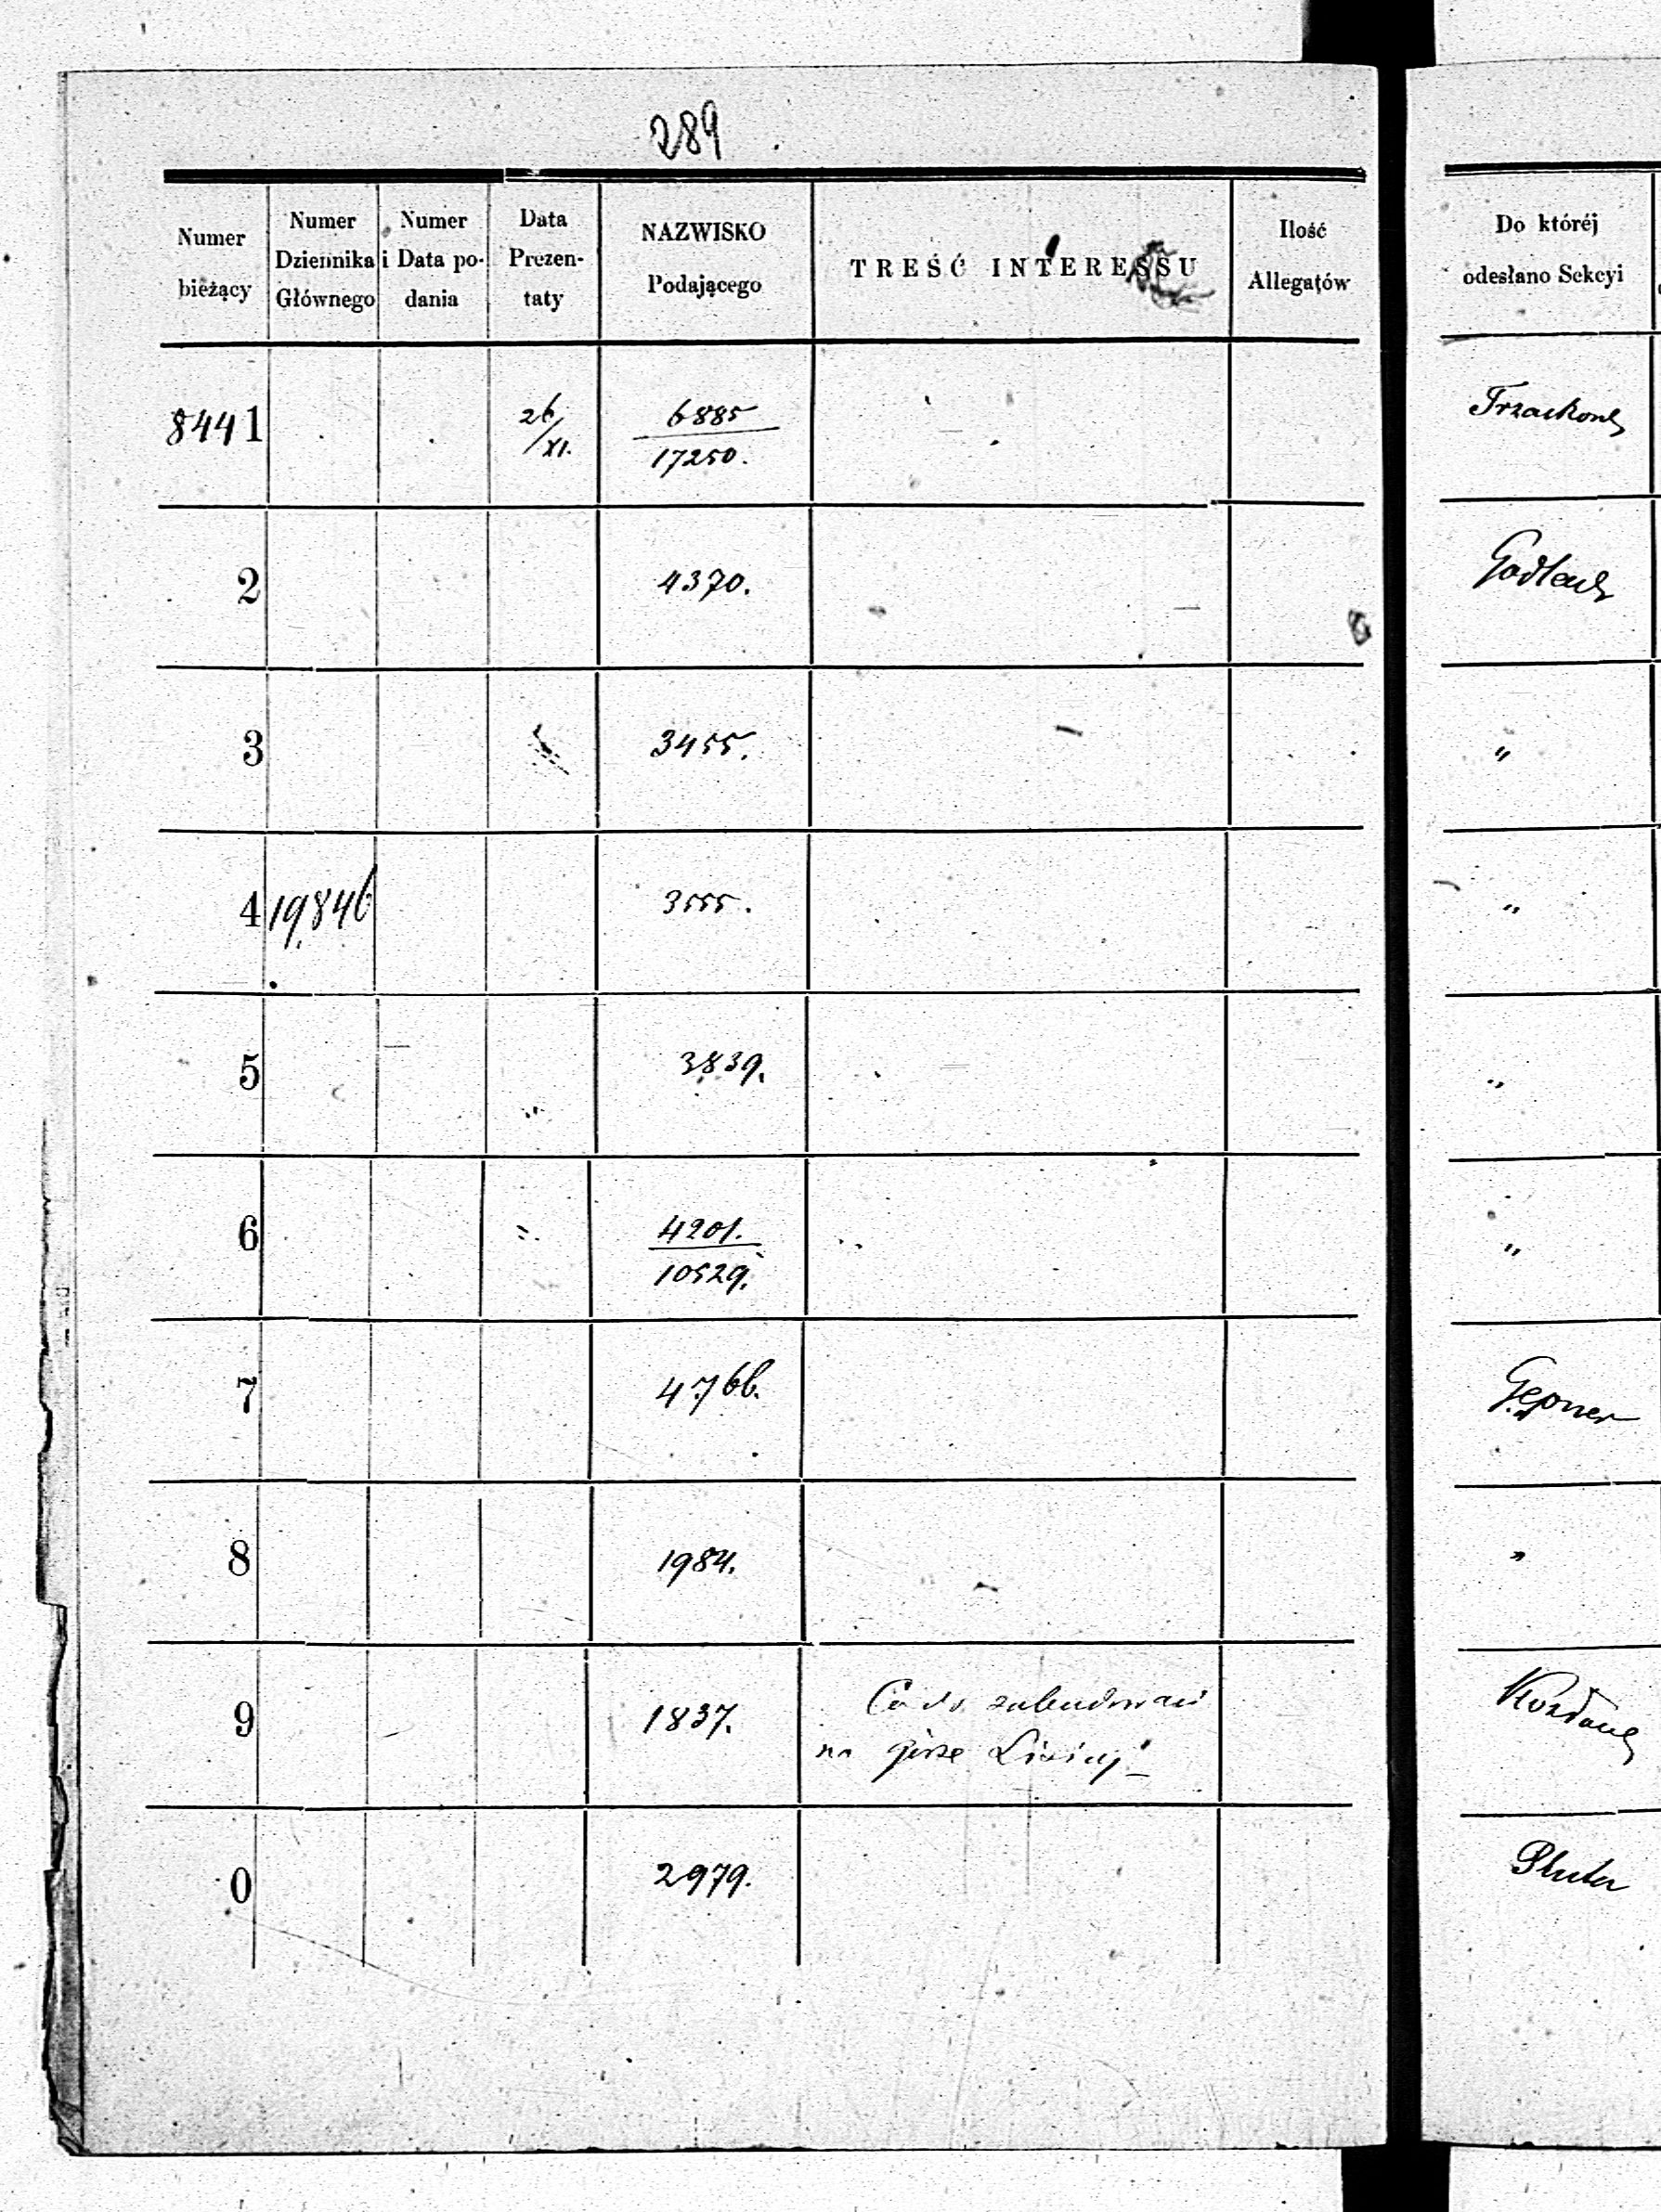 289
Numer bieżący
Numer Dziennika Głównego
Numer i Data podania
Data Prezentaty
NAZWISKO Podającego
TREŚĆ INTERESSU
Ilość Allegatów
Do któréj odesłano Sekcyi
8441 26/XI. 6885
17250.
2 4370. 
3 3455. "
4 19846 3555. "
5 " 3839. "
6 " 4201. "
10529.
7 4766. Gepner
8 1984. "
9 1837. Co do zabudowań
na górze
0 2979. Pluta